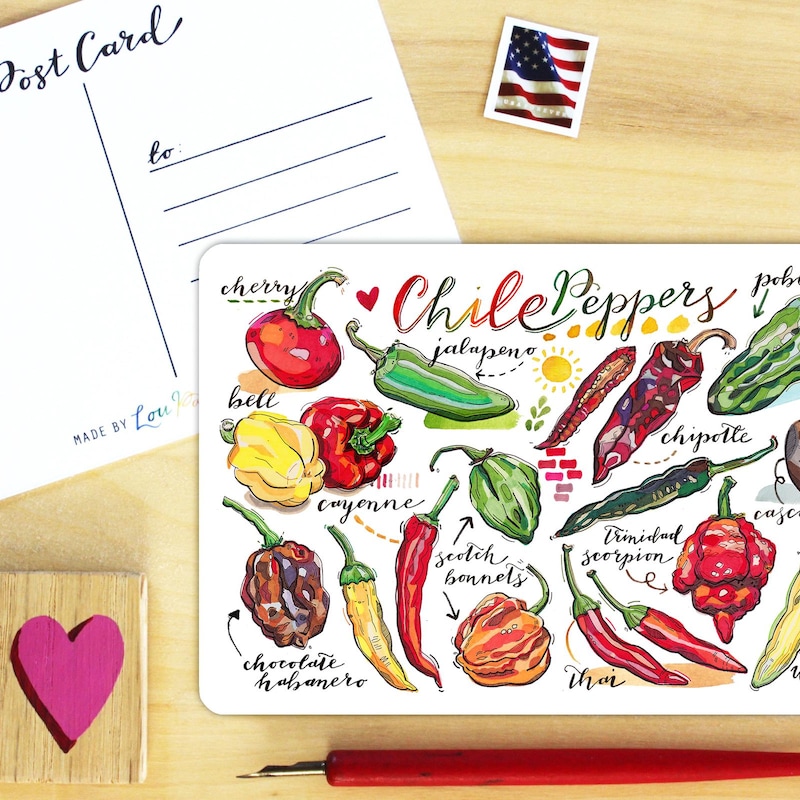 Post Card
to:
MADE BY Lou
Chile Peppers
cherry
jalapeno
bell
chipotle
cayenne
scotch
bonnets
Trinidad
scorpion
chocolate
habanero
thai